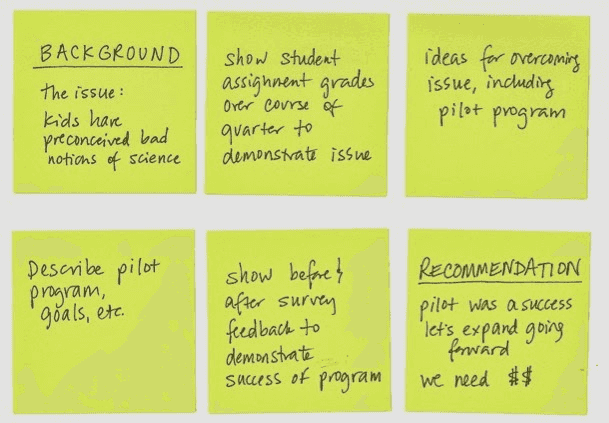 BACKGROUND
the issue:
Kids have
preconceived bad
notions of science
show student
assignment grades
over course of
quarter to
demonstrate issue
ideas for overcoming
issue, including
pilot program
Describe pilot
program,
goals, etc.
show before &
after survey
feedback to
demonstrate
success of program
RECOMMENDATION
pilot was a success
let's expand going
forward
we need $$